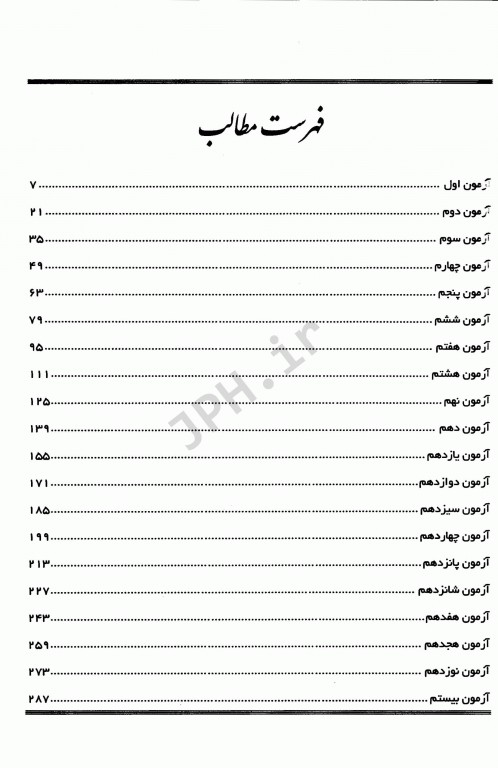 فهرست مطالب
آزمون اول ........................................ ۷
آزمون دوم ........................................ ۲۱
آزمون سوم ........................................ ۳۵
آزمون چهارم ........................................ ۴۹
آزمون پنجم ........................................ ۶۳
آزمون ششم ........................................ ۷۹
آزمون هفتم ........................................ ۹۵
آزمون هشتم ........................................ ۱۱۱
آزمون نهم ........................................ ۱۲۵
آزمون دهم ........................................ ۱۳۹
آزمون یازدهم ........................................ ۱۵۵
آزمون دوازدهم ........................................ ۱۷۱
آزمون سیزدهم ........................................ ۱۸۵
آزمون چهاردهم ........................................ ۱۹۹
آزمون پانزدهم ........................................ ۲۱۳
آزمون شانزدهم ........................................ ۲۲۷
آزمون هفدهم ........................................ ۲۴۳
آزمون هجدهم ........................................ ۲۵۹
آزمون نوزدهم ........................................ ۲۷۳
آزمون بیستم ........................................ ۲۸۷
JPH.ir